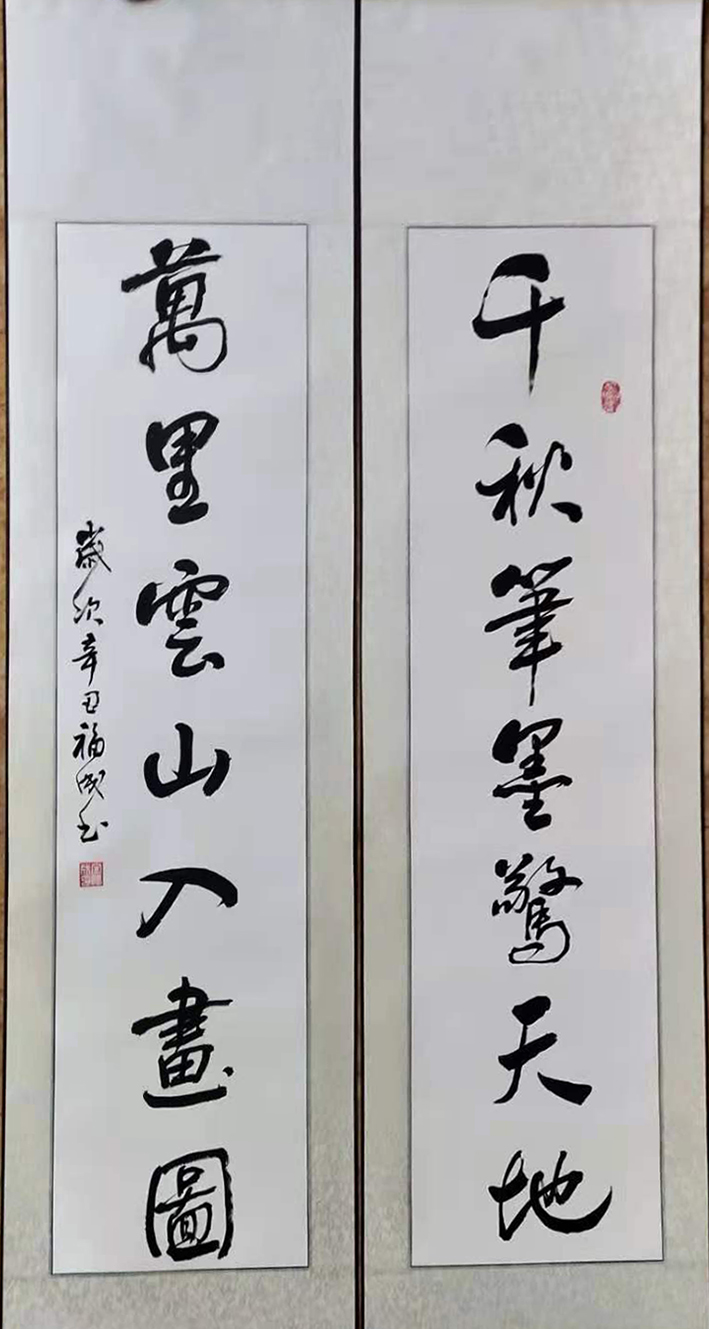 千秋筆墨驚天地
萬里雲山入畫圖
歲次辛丑福成书